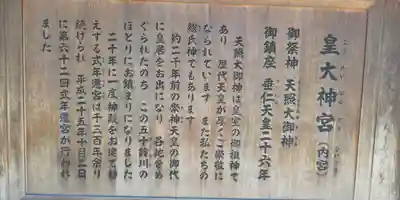 皇大神宮（内宮）
御祭神　天照大御神
御鎮座　垂仁天皇二十六年
天照大御神は皇室の御祖神で
あり　歴代天皇が厚くご崇敬に
なられています　また私たちの
総氏神でもあります
約二千年前の崇神天皇の御代
に皇居をお出になり　各地をめ
ぐられたのち　この五十鈴川の
ほとりにお鎮まりになりました
二十年に一度神殿をお建て替
えする式年遷宮は千三百年余り
続けられ　平成二十五年十月二日
に第六十二回式年遷宮が行われ
ました